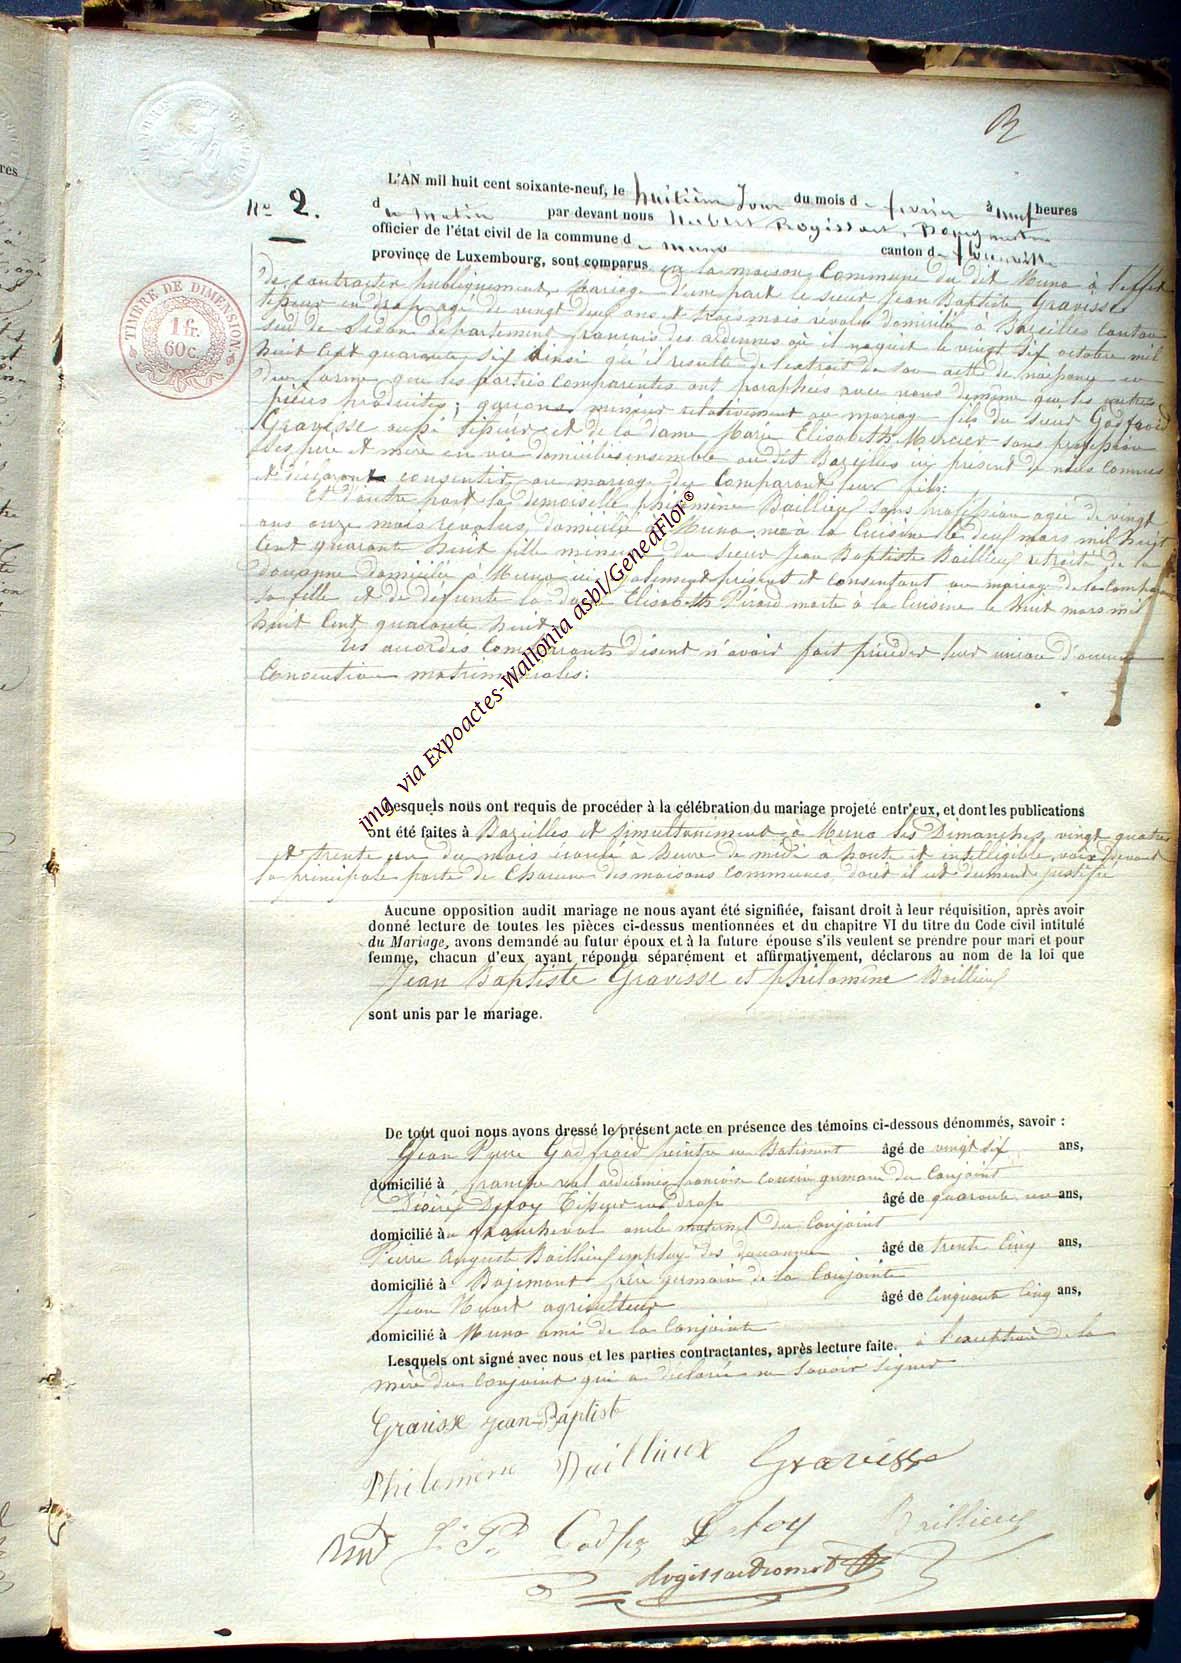 B
TIMBRE DE DIMENSION
1 fr.
60 c.
res
No 2.
L'AN mil huit cent soixante-neuf, le huitième Jour du mois de fevrier à neuf heures
du matin par devant nous Hubert Rogissart, Bourgmestre
officier de l'état civil de la commune de Muno canton de Florenville
province de Luxembourg, sont comparus en la maison Commune du dit Muno à l'effet
de contracter publiquement mariage d'une part le sieur Jean Baptiste Gravisse
tisseur en drap agé de vingt deux ans et trois mois révolus domicilié à Bazeilles Canton
sud de Sedan département français des ardennes où il naquit le vingt six octobre mil
huit Cent quarante six ainsi qu'il resulte de l'extrait de son acte de naissance en
due forme que les parties Comparantes ont paraphées avec nous de même que les autres
pièces produites; garçon mineur relativement au mariage fils du sieur Godfroid
Gravisse aussi tisseur et de la dame Marie Elisabeth Mercier sans profession
ses père et mère en vie domiciliés ensemble au dit Bazeilles ici présent à nous Connus
et déclarant consentir au mariage du Comparant leur fils:
Et d'autre part la demoiselle philomène Baillieux sans profession agée de vingt
ans onze mois revolus, domiciliée à Muno née à la Cuisine le deux mars mil huit
Cent quarante huit fille mineure du sieur Jean Baptiste Baillieux retraité de la
douanne domicilié à Muno ici également présent et consentant au mariage de la Comparante
sa fille et de defunte la dame Elisabeth Pirard morte à la Cuisine le huit mars mil
huit Cent quarante huit
Les accordés Comparants disent n'avoir fait précéder leur union d'aucune
Convention matrimoniales:
img via Expoactes-Wallonia asbl/GeneaFlor©
Lesquels nous ont requis de procéder à la célébration du mariage projeté entr'eux, et dont les publications
ont été faites à Bazeilles et simultanément à Muno les Dimanches vingt quatre
et trente un du mois écoulé à heure de midi à haute et intelligible voix devant
la principale porte de Chacune des maisons Communes, dont il est dument justifié
Aucune opposition audit mariage ne nous ayant été signifiée, faisant droit à leur réquisition, après avoir
donné lecture de toutes les pièces ci-dessus mentionnées et du chapitre VI du titre du Code civil intitulé
du Mariage, avons demandé au futur époux et à la future épouse s'ils veulent se prendre pour mari et pour
femme, chacun d'eux ayant répondu séparément et affirmativement, déclarons au nom de la loi que
Jean Baptiste Gravisse et philomène Baillieux
sont unis par le mariage.
De tout quoi nous avons dressé le présent acte en présence des témoins ci-dessous dénommés, savoir :
Jean Pierre Godfroid peintre en Batiment âgé de vingt six ans,
domicilié à francheval ardennes françaises Cousin germain du Conjoint
Désiré Defoy Tisseur en drap âgé de quarante un ans,
domicilié à francheval oncle maternel du Conjoint
Pierre Auguste Baillieux employé des douannes âgé de trente Cinq ans,
domicilié à Bajimont frère germain de la Conjointe
Jean Huart agriculteur âgé de Cinquante Cinq ans,
domicilié à Muno ami de la Conjointe
Lesquels ont signé avec nous et les parties contractantes, après lecture faite. à l'exception de la
mère du Conjoint qui a déclarée ne savoir signer
Gravisse Jean-Baptiste
Philomène Baillieux Gravisse
J. P. Godfr Defoy Baillieux